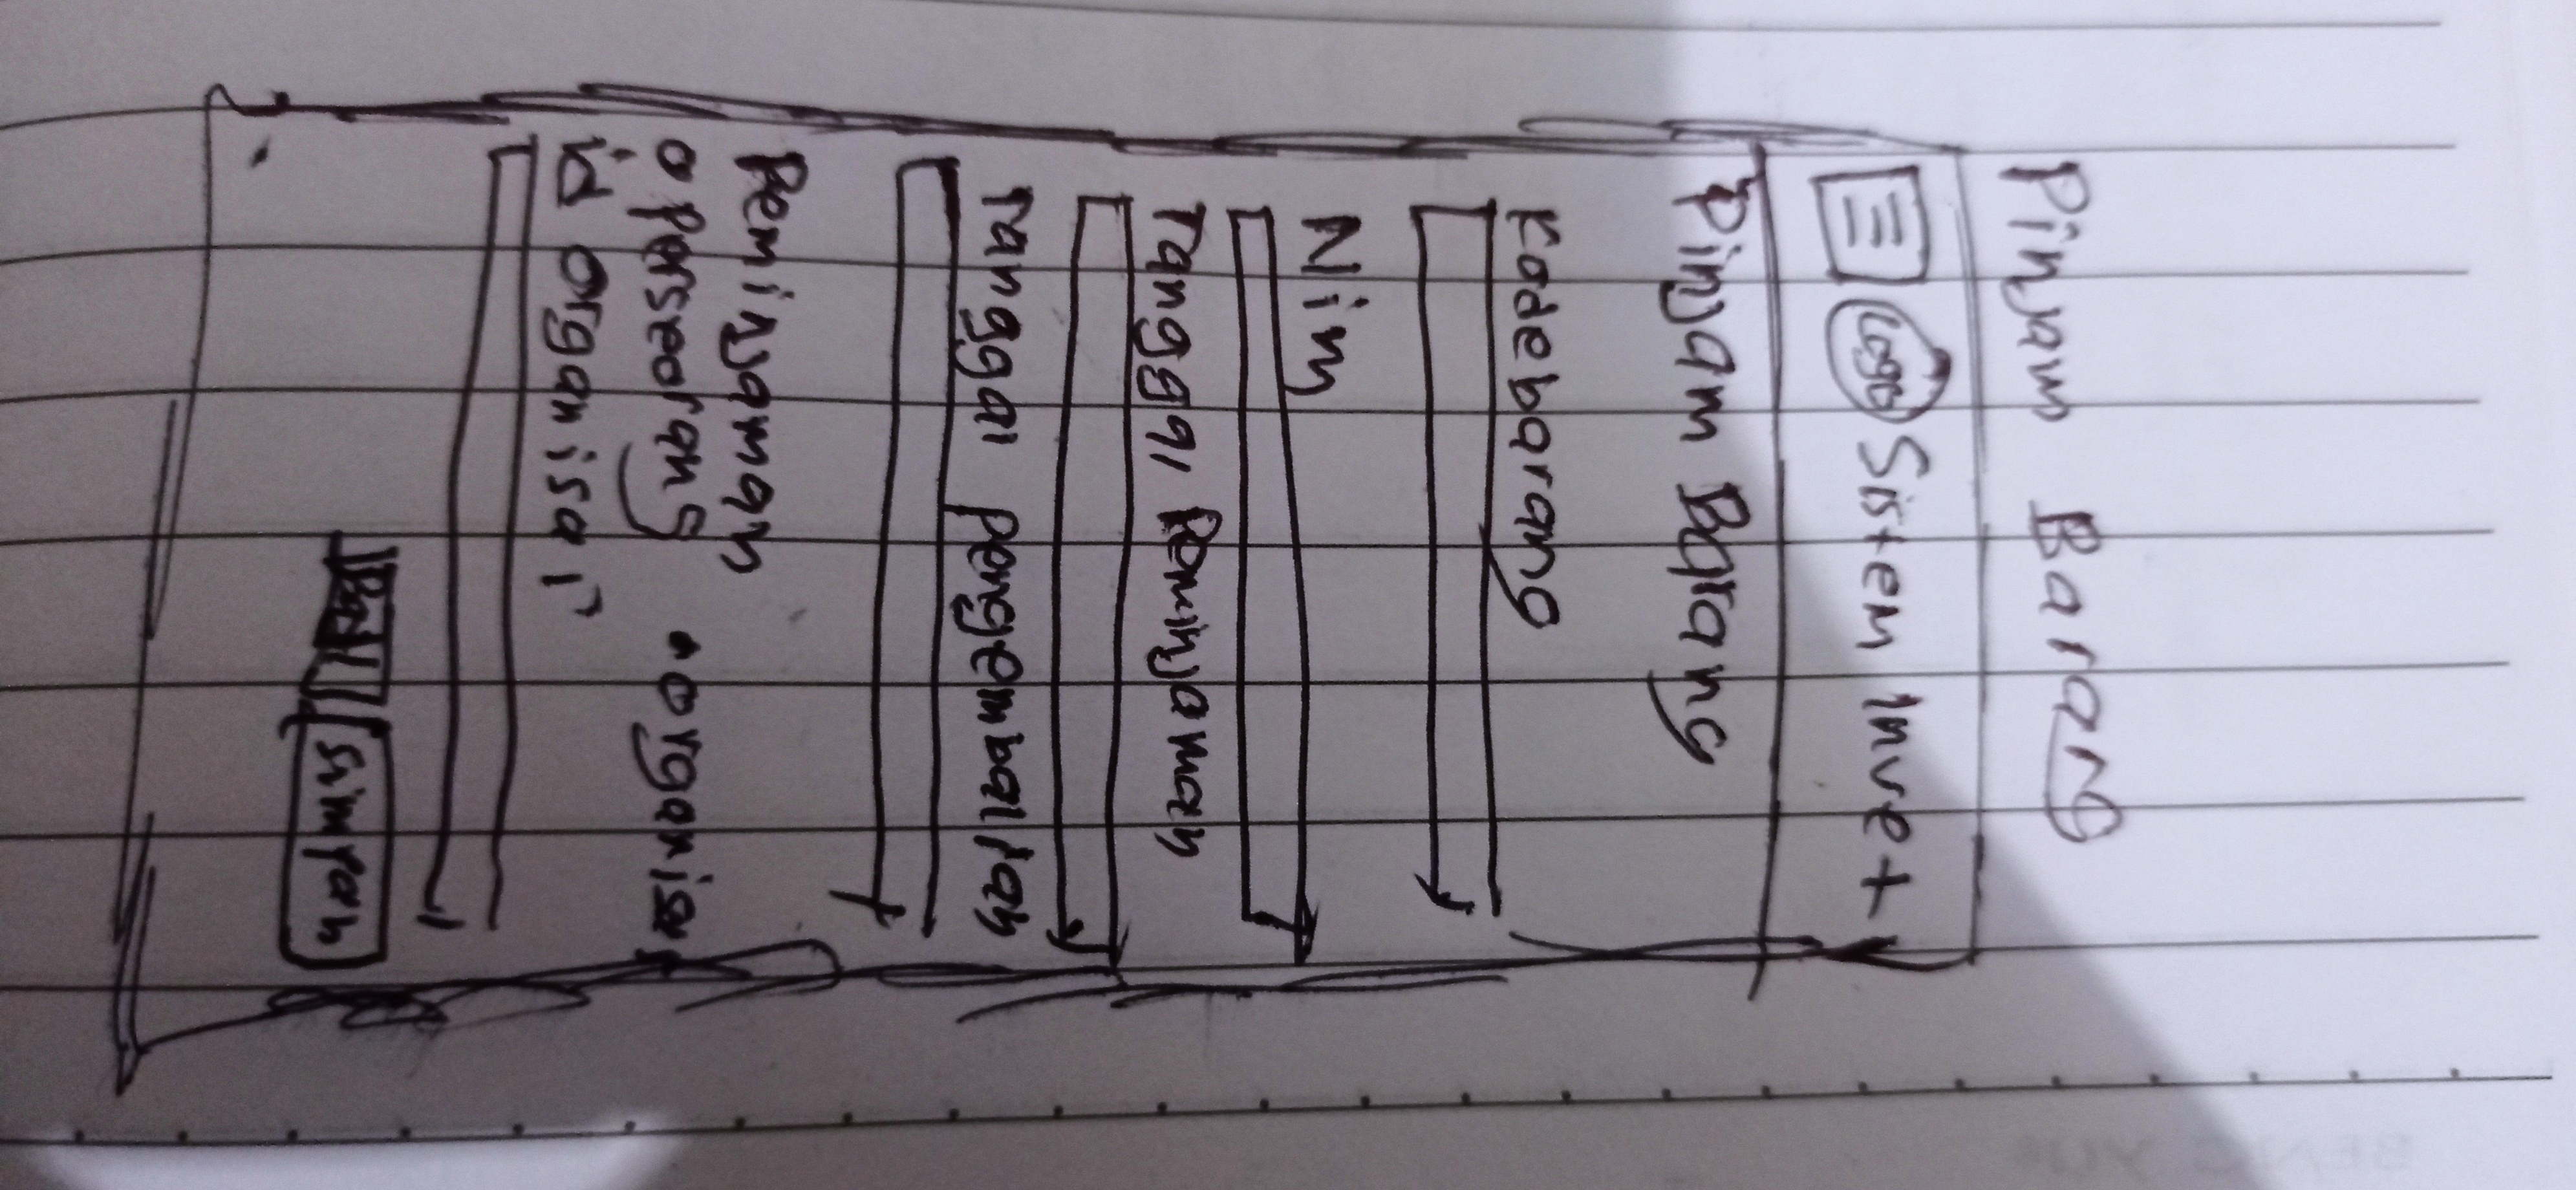 Pinjam Barang
Logo Sistem Invet
Pinjam Barang
Kodebarang
Nim
Tanggal Peminjaman
Tanggal pengembalian
Peminjaman
o perseorang • organisasi
id organisasi
Simpan